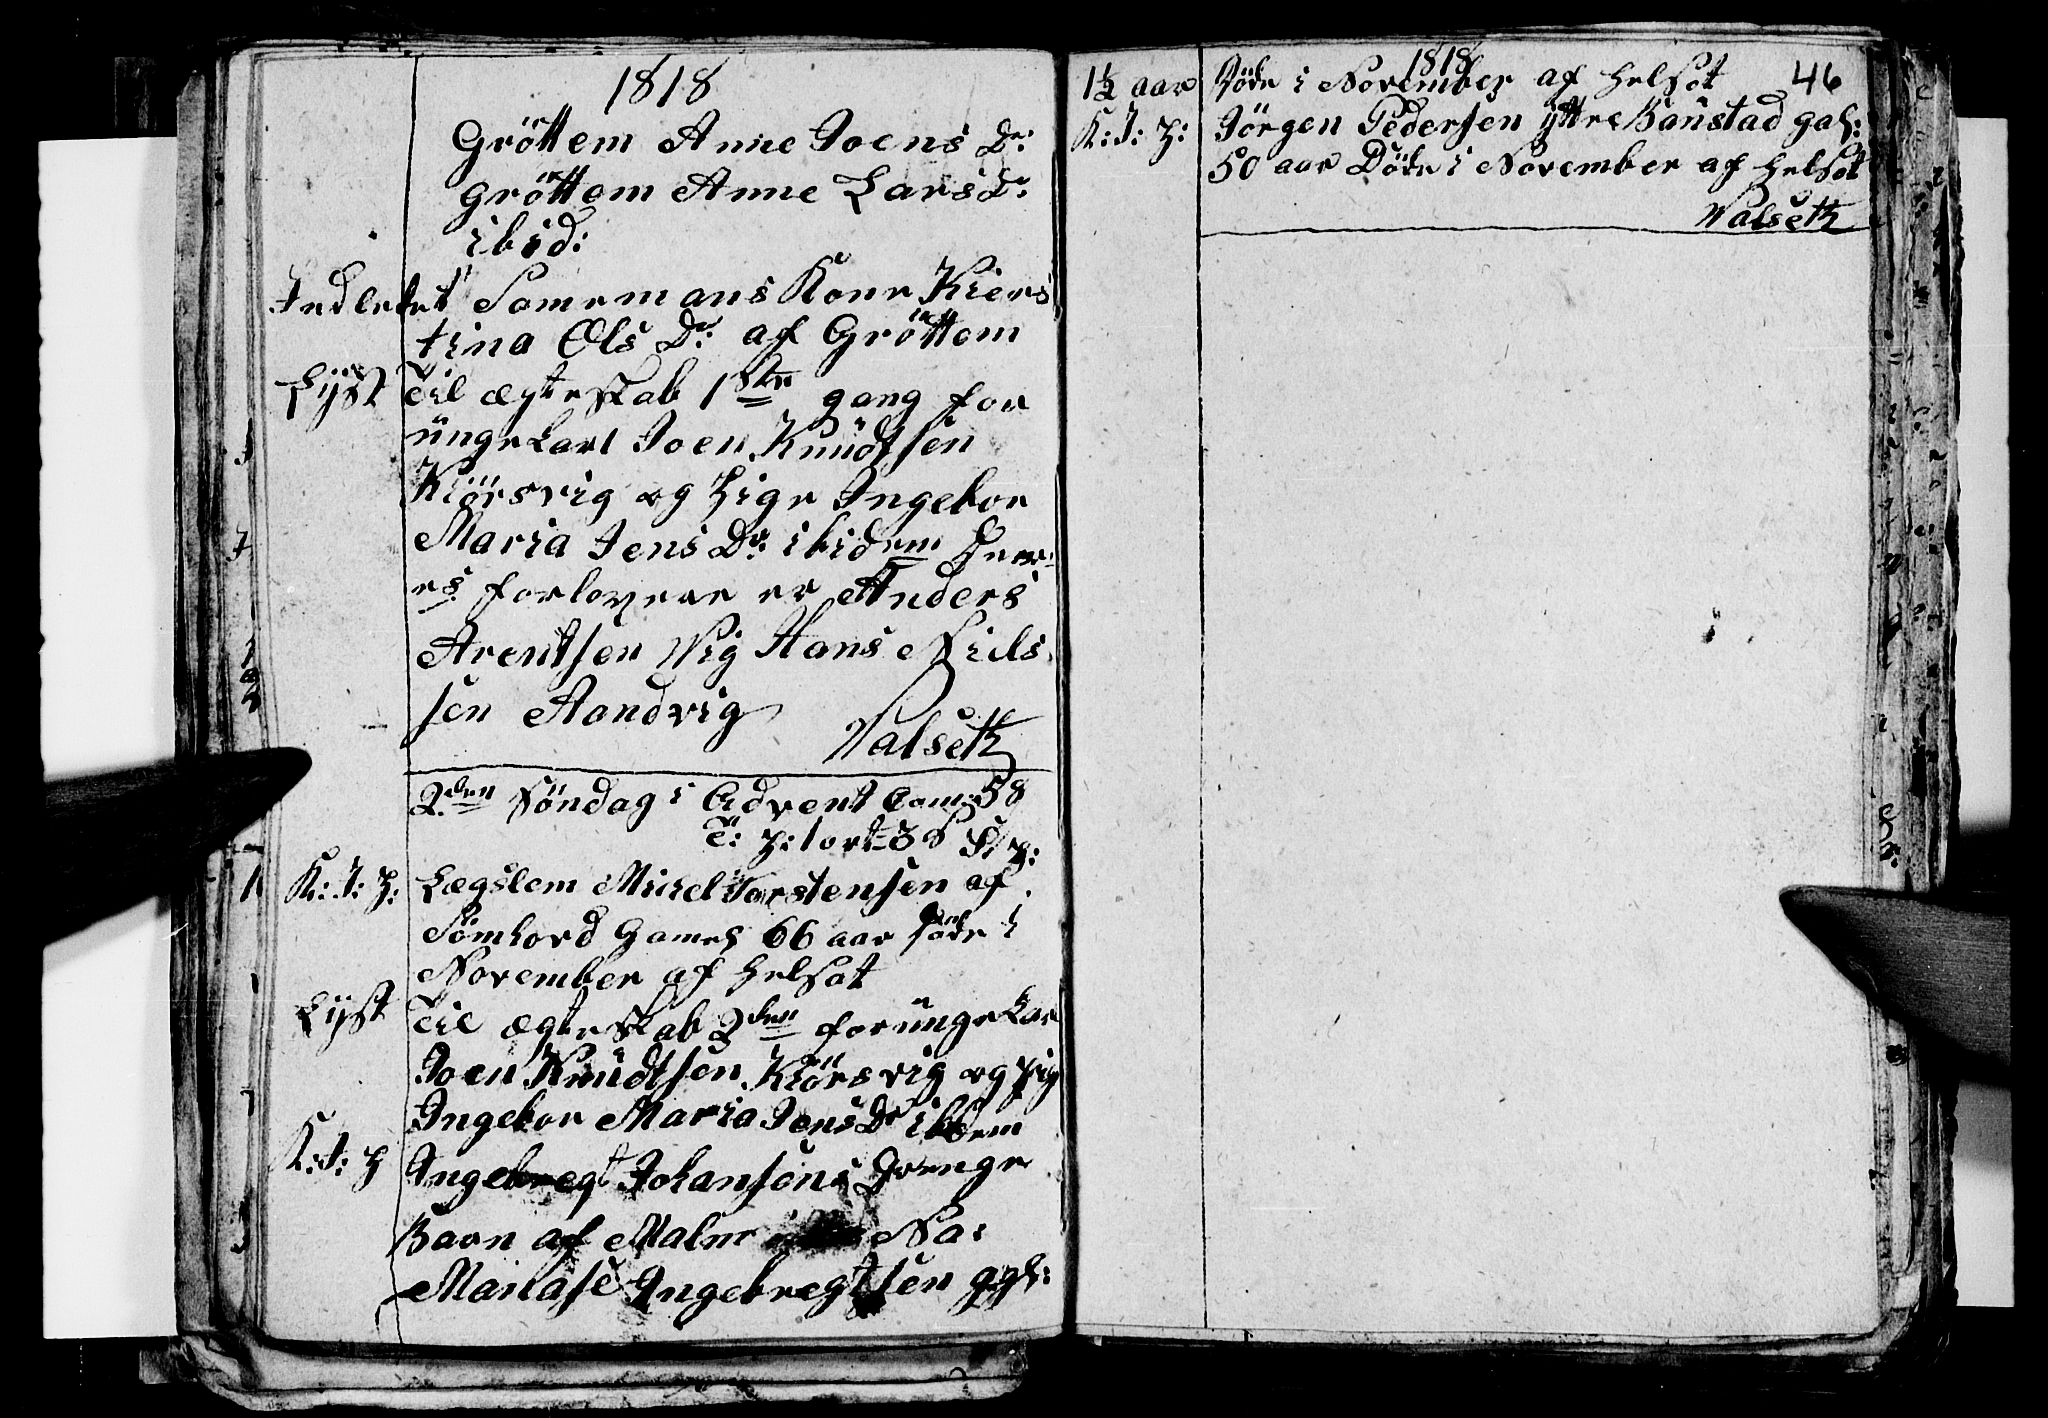 1818
Gröttem Anne Joens Dr:
Gröttem Anne Lars Dr:
ibid:
Indledet Somemans Kone Kiers
tina Ols Dr: af Gröttem
Lÿst Til ægteskab 1ste gang for
ungekarl Joen Knudtsen
Kiörsvig og Pige Ingebor
Maria Jens Dr: ibidem
es forlovere er Anders
Arentsen Wig Hans Niels
sen Aandvig
Valseth
2den Söndag i Advent Com: 58
K: I: P: Lægslem Mickel Torstensen af
Sömhovd Gamel 66 aar döde i
November af helsot
Lÿst Til ægteskab 2den for ungekar
Joen Knudtsen Kiörsvig og Pig
Ingebor Maria Jens Dr ibidem
K: I: P Ingebregt Johansens Drenge
Barn af Malnes Na:
Manase Ingebregtsen gal:
1818
46
1½ aar Döde i November af helsot
K: I: P: Jörgen Pedersen Yttre Baustad gal:
50 aar Döde i November af helsot
Valseth